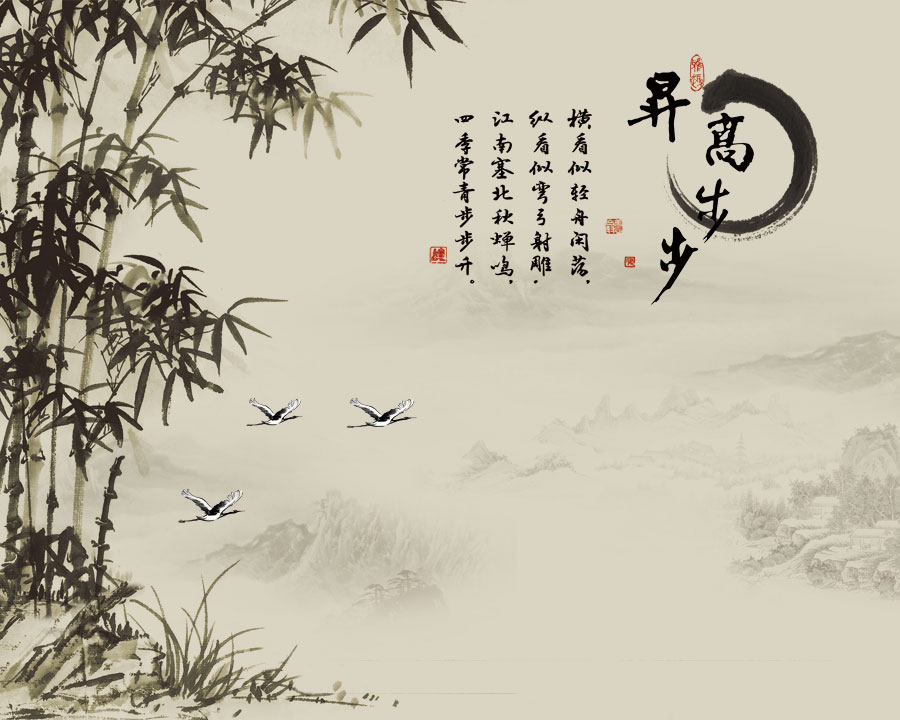 步步高昇
横看似轻舟闲荡，
纵看似弯弓射雕。
江南塞北秋蝉鸣，
四季常青步步升。